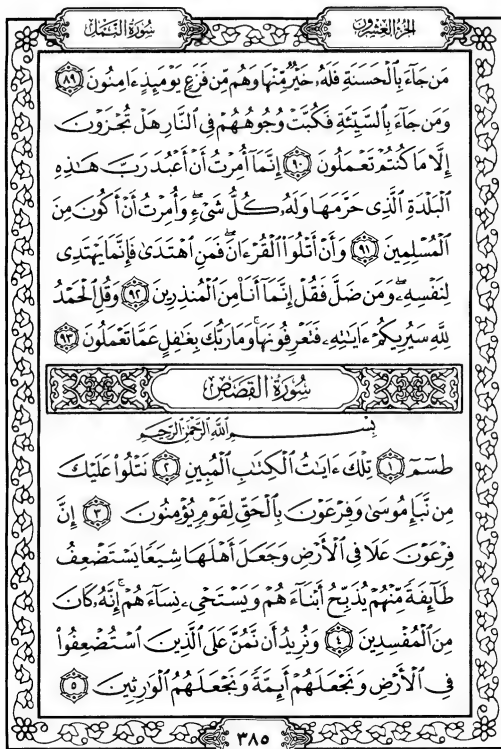 الجزء العشرون
سورة النمل
مَن جَآءَ بِٱلْحَسَنَةِ فَلَهُۥ خَيْرٌ مِّنْهَا وَهُم مِّن فَزَعٍ يَوْمَئِذٍ ءَامِنُونَ ٨٩
وَمَن جَآءَ بِٱلسَّيِّئَةِ فَكُبَّتْ وُجُوهُهُمْ فِى ٱلنَّارِ هَلْ تُجْزَوْنَ
إِلَّا مَا كُنتُمْ تَعْمَلُونَ ٩٠ إِنَّمَآ أُمِرْتُ أَنْ أَعْبُدَ رَبَّ هَٰذِهِ
ٱلْبَلْدَةِ ٱلَّذِى حَرَّمَهَا وَلَهُۥ كُلُّ شَىْءٍ وَأُمِرْتُ أَنْ أَكُونَ مِنَ
ٱلْمُسْلِمِينَ ٩١ وَأَنْ أَتْلُوَا۟ ٱلْقُرْءَانَ فَمَنِ ٱهْتَدَىٰ فَإِنَّمَا يَهْتَدِى
لِنَفْسِهِۦ وَمَن ضَلَّ فَقُلْ إِنَّمَآ أَنَا۠ مِنَ ٱلْمُنذِرِينَ ٩٢ وَقُلِ ٱلْحَمْدُ
لِلَّهِ سَيُرِيكُمْ ءَايَٰتِهِۦ فَتَعْرِفُونَهَا وَمَا رَبُّكَ بِغَٰفِلٍ عَمَّا تَعْمَلُونَ ٩٣
سورة القصص
بِسْمِ ٱللَّهِ ٱلرَّحْمَٰنِ ٱلرَّحِيمِ
طسٓمٓ ١ تِلْكَ ءَايَٰتُ ٱلْكِتَٰبِ ٱلْمُبِينِ ٢ نَتْلُوا۟ عَلَيْكَ
مِن نَّبَإِ مُوسَىٰ وَفِرْعَوْنَ بِٱلْحَقِّ لِقَوْمٍ يُؤْمِنُونَ ٣ إِنَّ
فِرْعَوْنَ عَلَا فِى ٱلْأَرْضِ وَجَعَلَ أَهْلَهَا شِيَعًا يَسْتَضْعِفُ
طَآئِفَةً مِّنْهُمْ يُذَبِّحُ أَبْنَآءَهُمْ وَيَسْتَحْىِۦ نِسَآءَهُمْ إِنَّهُۥ كَانَ
مِنَ ٱلْمُفْسِدِينَ ٤ وَنُرِيدُ أَن نَّمُنَّ عَلَى ٱلَّذِينَ ٱسْتُضْعِفُوا۟
فِى ٱلْأَرْضِ وَنَجْعَلَهُمْ أَئِمَّةً وَنَجْعَلَهُمُ ٱلْوَٰرِثِينَ ٥
٣٨٥